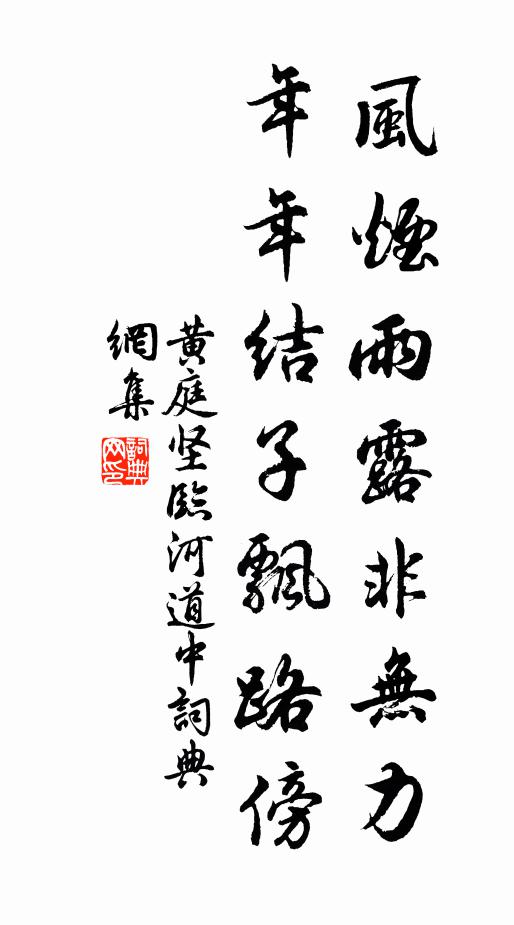 風煙雨露非無力
年年結子飄路傍
黄庭坚臨河道中詞典
網集
詞典網印